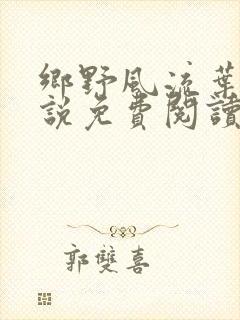 鄉野風流葉
說免費閱讀
郭雙喜